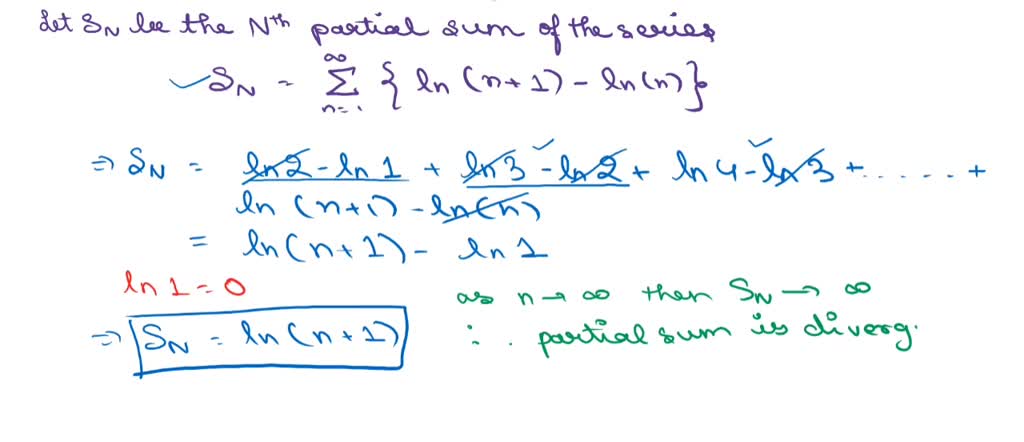 Let SN be the Nth partial sum of the series
SN = ∞ Σ n=1 { ln (n+1) - ln(n)}
⇒ SN = ln2 - ln 1 + ln3 - ln2 + ln 4 - ln 3 + ...... +
ln (n+1) - ln(n)
= ln(n+1) - ln 1
ln 1 = 0
as n → ∞ then SN → ∞
⇒ SN = ln(n+1)
∴ partial sum is diverg.